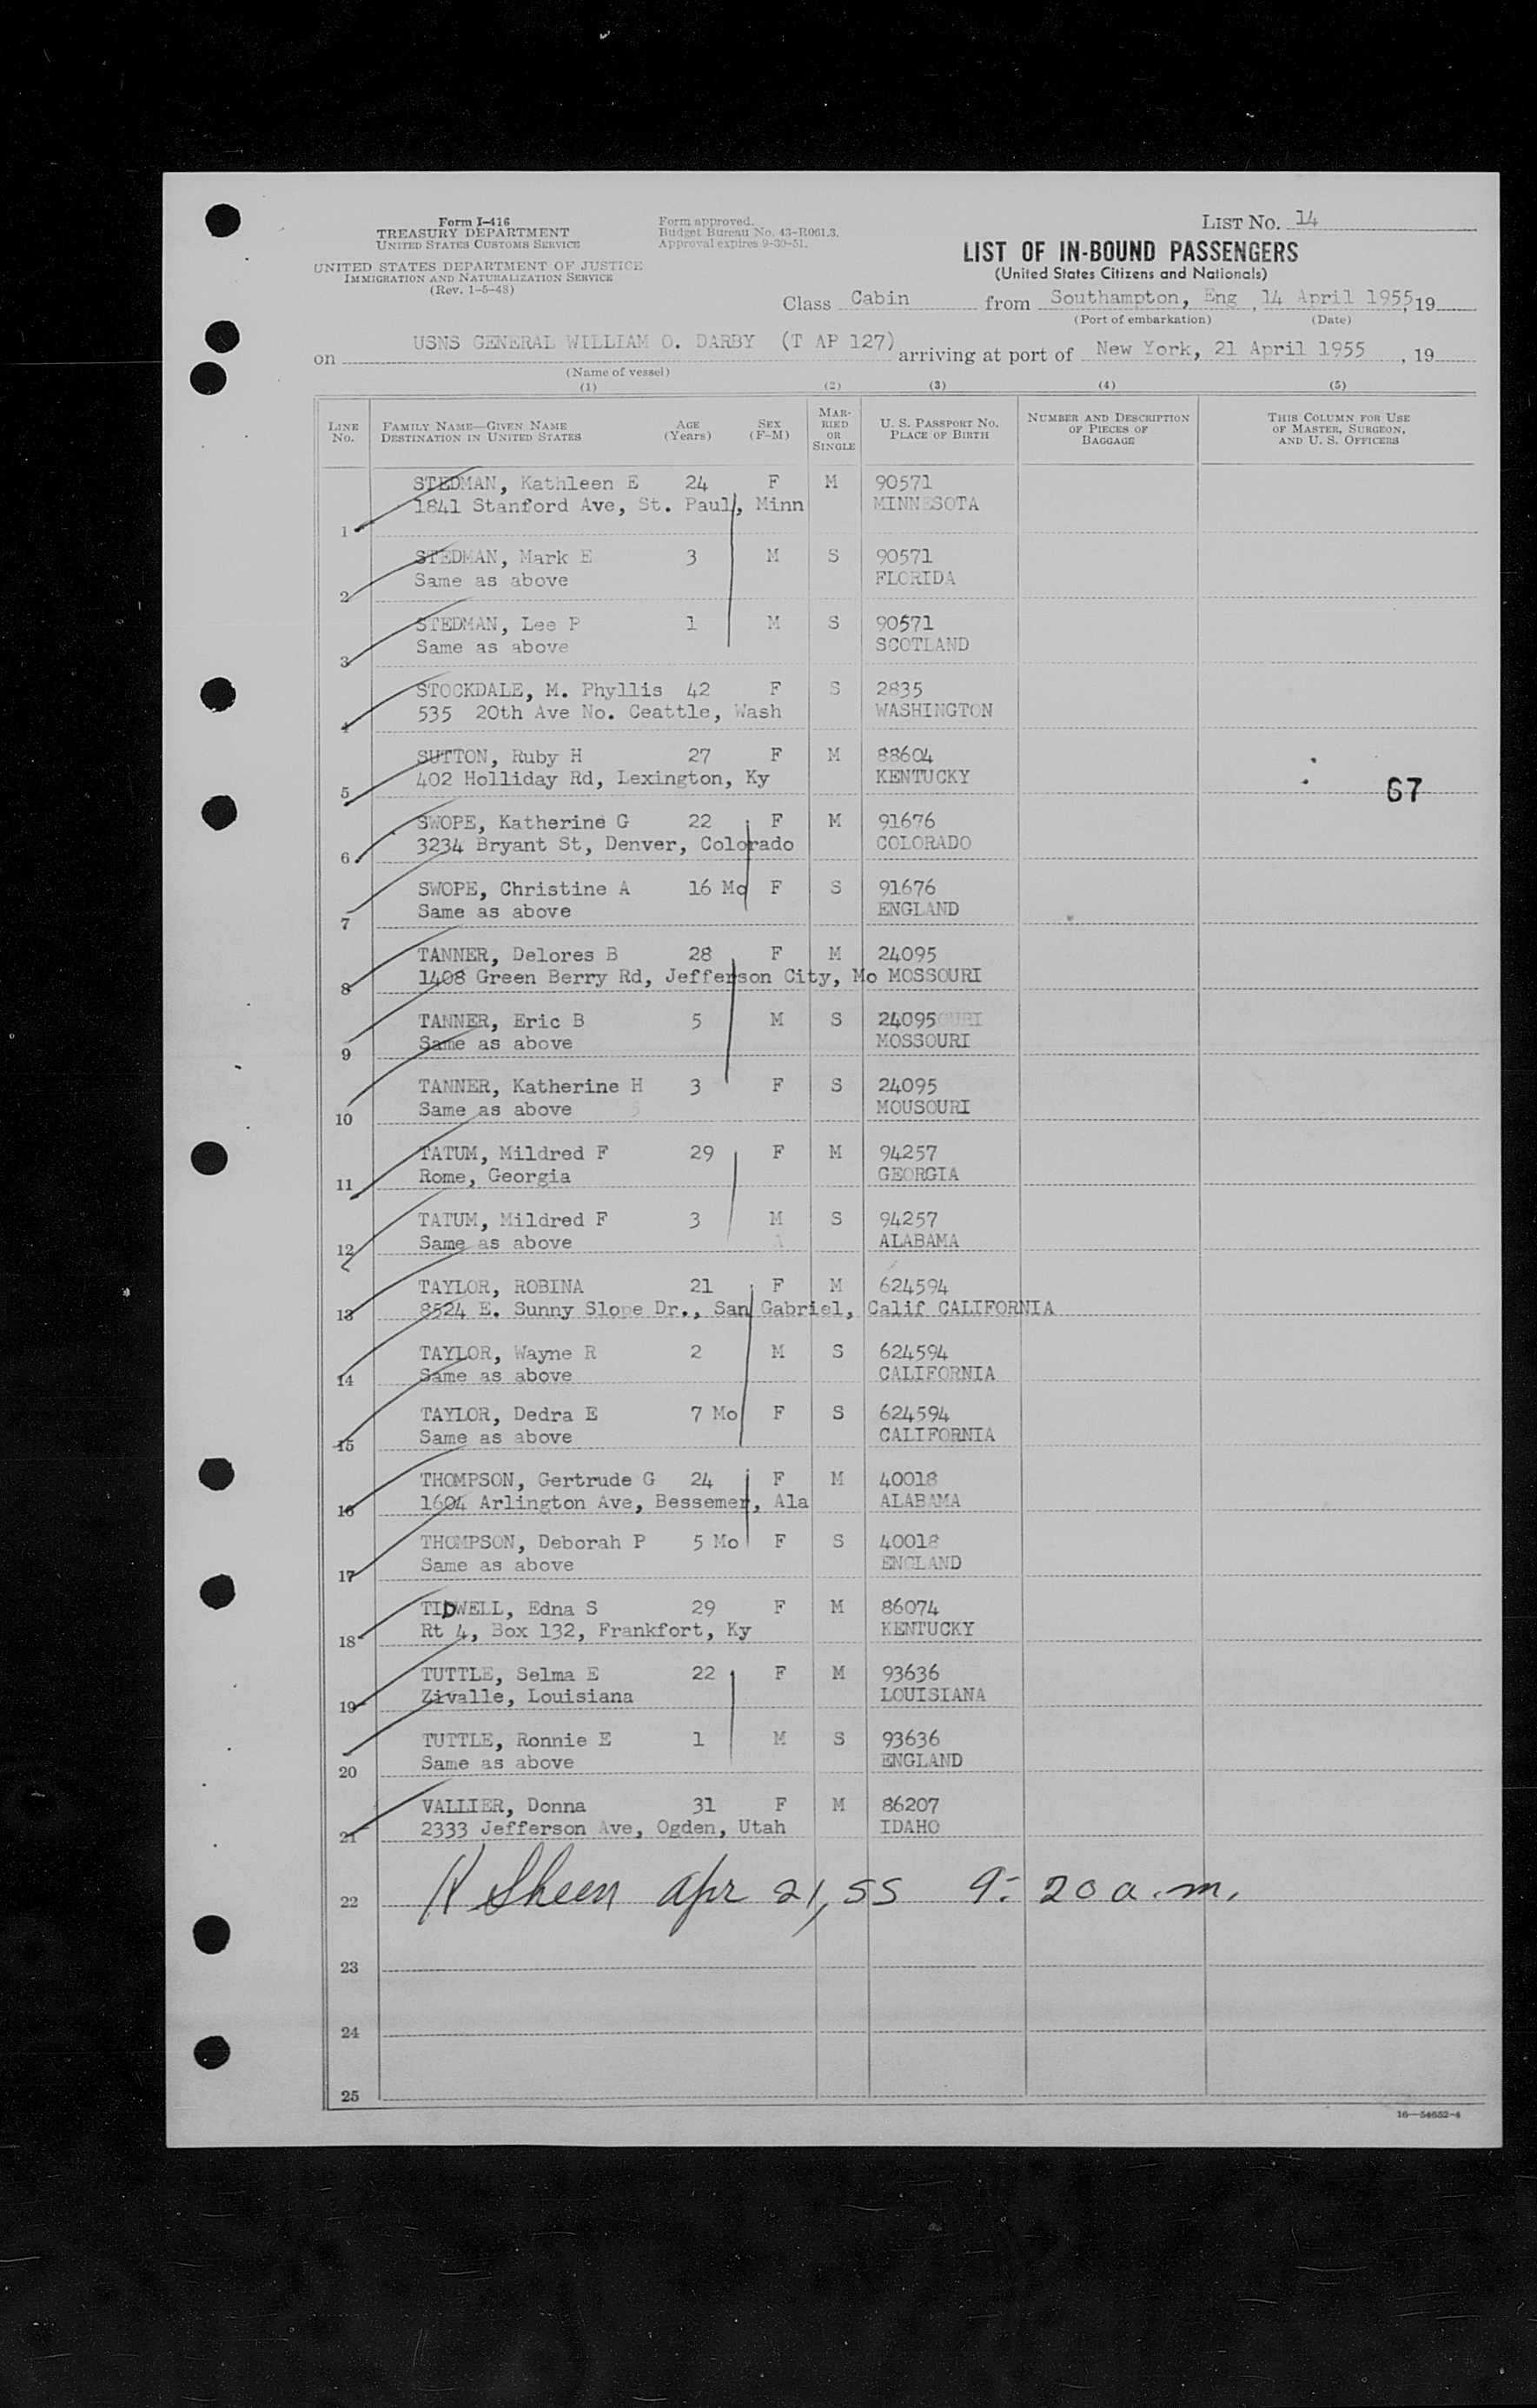 Form I-416
TREASURY DEPARTMENT
UNITED STATES CUSTOMS SERVICE
UNITED STATES DEPARTMENT OF JUSTICE
IMMIGRATION AND NATURALIZATION SERVICE
(Rev. 1-5-48)
Form approved.
Budget Bureau No. 43-R061.3.
Approval expires 9-30-51.
LIST NO. 14
LIST OF IN-BOUND PASSENGERS
(United States Citizens and Nationals)
Class Cabin from Southampton, Eng, 14 April 1955, 19
(Port of embarkation) (Date)
on USNS GENERAL WILLIAM O. DARBY (T AP 127) arriving at port of New York, 21 April 1955, 19
(Name of vessel)
(1) (2) (3) (4) (5)
LINE NO. FAMILY NAME—GIVEN NAME DESTINATION IN UNITED STATES AGE (Years) SEX (F-M) MARRIED OR SINGLE U. S. PASSPORT NO. PLACE OF BIRTH NUMBER AND DESCRIPTION OF PIECES OF BAGGAGE THIS COLUMN FOR USE OF MASTER, SURGEON, AND U. S. OFFICERS
STEDMAN, Kathleen E 24 F M 90571
1 1841 Stanford Ave, St. Paul, Minn MINNESOTA
STEDMAN, Mark E 3 M S 90571
2 Same as above FLORIDA
STEDMAN, Lee P 1 M S 90571
3 Same as above SCOTLAND
STOCKDALE, M. Phyllis 42 F S 2835
4 535 20th Ave No. Ceattle, Wash WASHINGTON
SUTTON, Ruby H 27 F M 88604
5 402 Holliday Rd, Lexington, Ky KENTUCKY
67
SWOPE, Katherine G 22 F M 91676
6 3234 Bryant St, Denver, Colorado COLORADO
SWOPE, Christine A 16 Mo F S 91676
7 Same as above ENGLAND
TANNER, Delores B 28 F M 24095
8 1408 Green Berry Rd, Jefferson City, Mo MOSSOURI
TANNER, Eric B 5 M S 24095
9 Same as above MOSSOURI
TANNER, Katherine H 3 F S 24095
10 Same as above MOUSOURI
TATUM, Mildred F 29 F M 94257
11 Rome, Georgia GEORGIA
TATUM, Mildred F 3 M S 94257
12 Same as above ALABAMA
TAYLOR, ROBINA 21 F M 624594
13 8524 E. Sunny Slope Dr., San Gabriel, Calif CALIFORNIA
TAYLOR, Wayne R 2 M S 624594
14 Same as above CALIFORNIA
TAYLOR, Dedra E 7 Mo F S 624594
15 Same as above CALIFORNIA
THOMPSON, Gertrude G 24 F M 40018
16 1604 Arlington Ave, Bessemer, Ala ALABAMA
THOMPSON, Deborah P 5 Mo F S 40018
17 Same as above ENGLAND
TIDWELL, Edna S 29 F M 86074
18 Rt 4, Box 132, Frankfort, Ky KENTUCKY
TUTTLE, Selma E 22 F M 93636
19 Zivalle, Louisiana LOUISIANA
TUTTLE, Ronnie E 1 M S 93636
20 Same as above ENGLAND
VALLIER, Donna 31 F M 86207
21 2333 Jefferson Ave, Ogden, Utah IDAHO
22 H Sheen Apr 21, 55 9:20 a.m.
23
24
25
16—54652-4